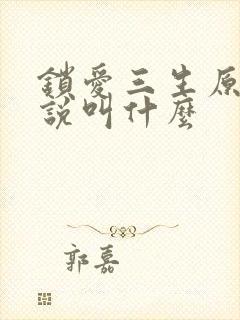 鎖愛三生原
說叫什麼
郭嘉